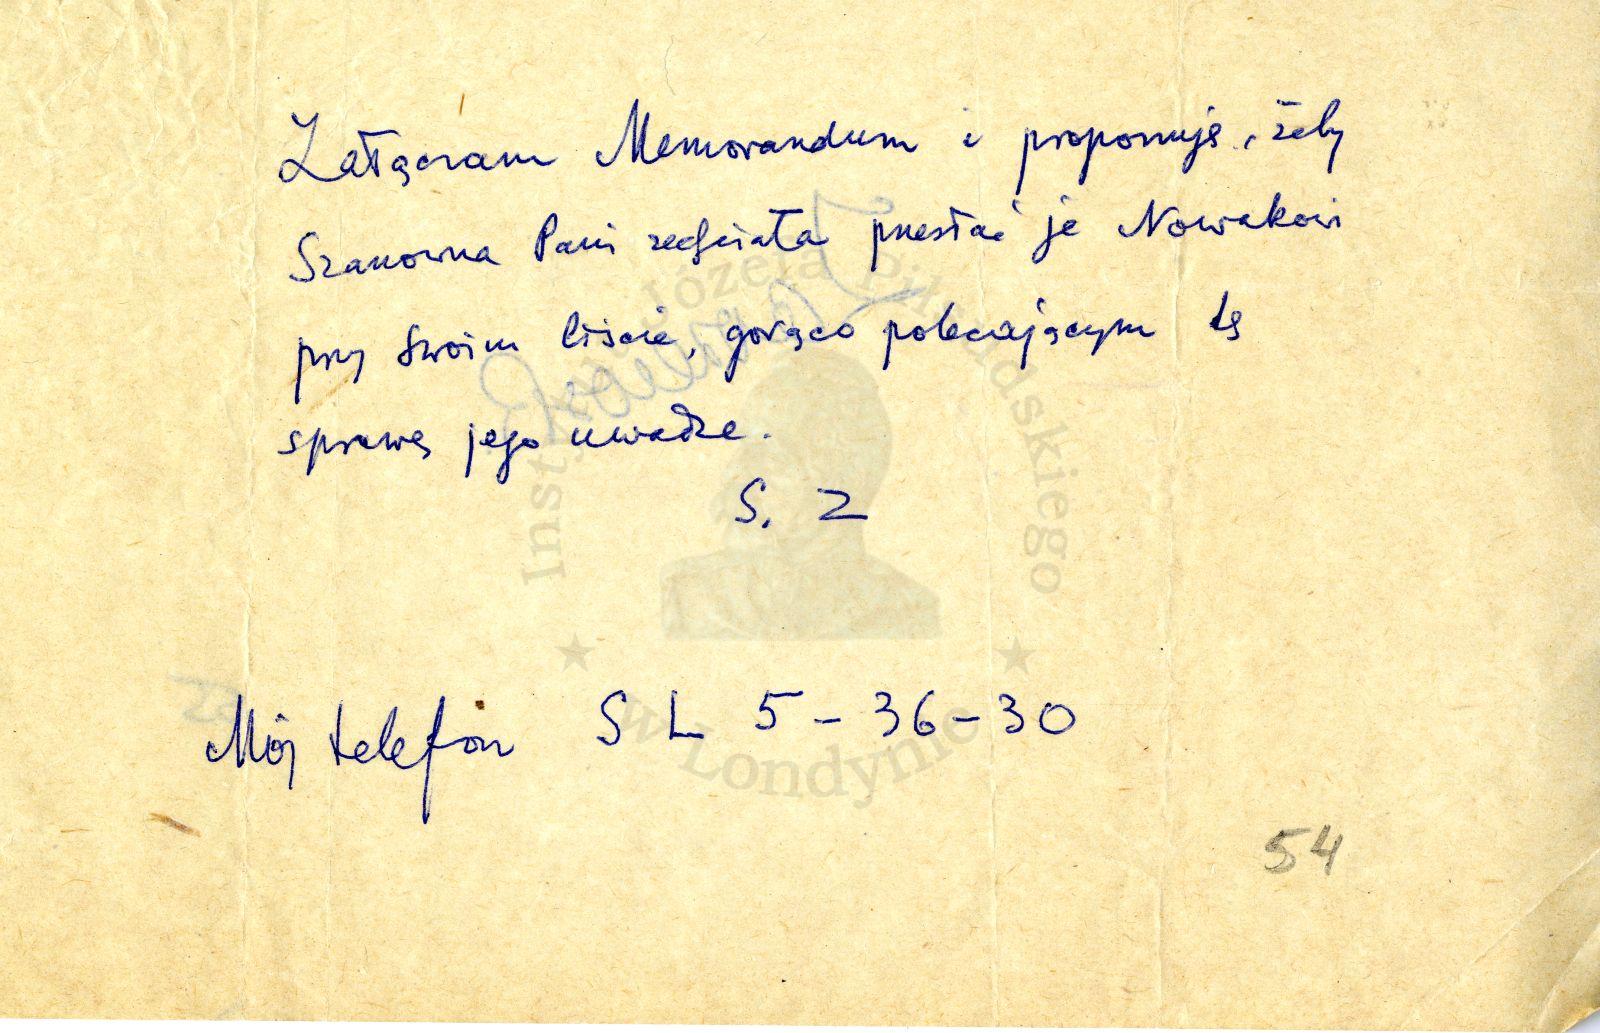 Załączam Memorandum i proponuję, żeby
Szanowna Pani zechciała przesłać je Nowakowi
przy swoim liście, gorąco polecającym tę
sprawę jego uwadze.
S. Z
Mój telefon SL 5-36-30
54
Instytut Józefa Piłsudskiego
w Londynie